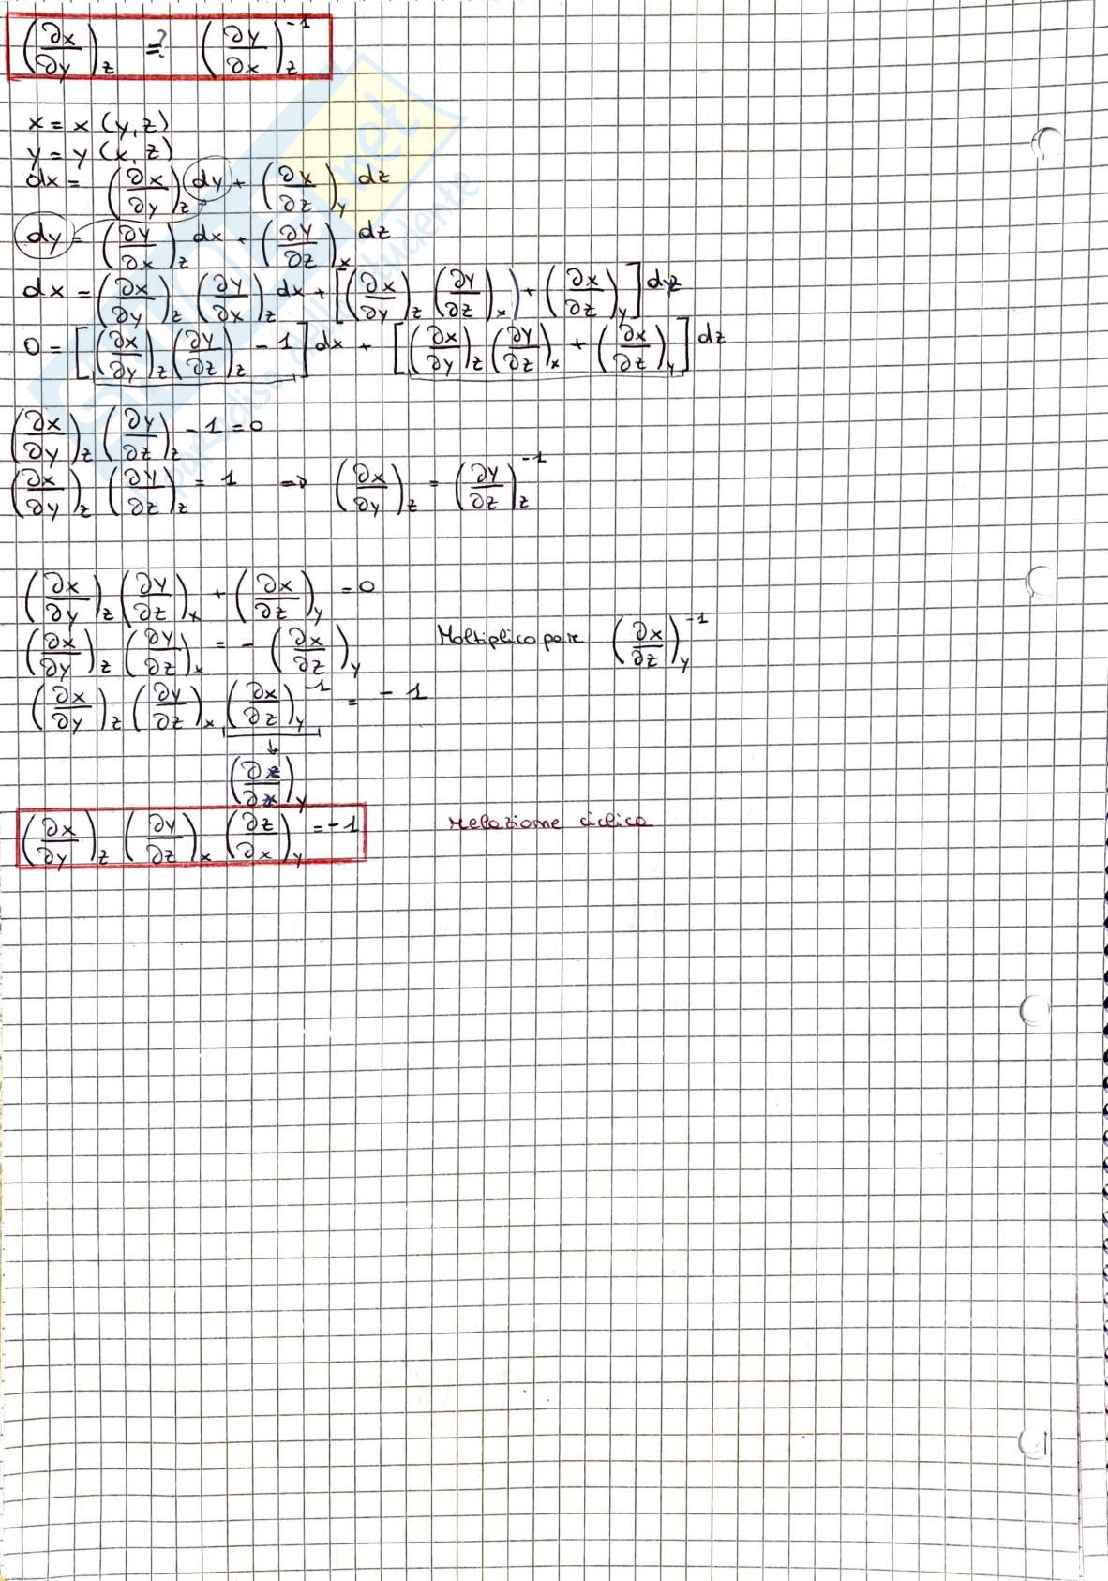 (∂x/∂y)_z =? (∂y/∂x)_z^-1
x = x (y, z)
y = y (x, z)
dx = (∂x/∂y)_z dy + (∂x/∂z)_y dz
dy = (∂y/∂x)_z dx + (∂y/∂z)_x dz
dx = (∂x/∂y)_z (∂y/∂x)_z dx + [(∂x/∂y)_z (∂y/∂z)_x) + (∂x/∂z)_y] dz
0 = [(∂x/∂y)_z (∂y/∂z)_z - 1] dx + [(∂x/∂y)_z (∂y/∂z)_x + (∂x/∂z)_y] dz
(∂x/∂y)_z (∂y/∂z)_z - 1 = 0
(∂x/∂y)_z (∂y/∂z)_z = 1 => (∂x/∂y)_z = (∂y/∂z)_z^-1
(∂x/∂y)_z (∂y/∂z)_x + (∂x/∂z)_y = 0
(∂x/∂y)_z (∂y/∂z)_x = - (∂x/∂z)_y Moltiplico per (∂x/∂z)_y^-1
(∂x/∂y)_z (∂y/∂z)_x (∂x/∂z)_y^-1 = - 1
↓
(∂z/∂x)_y
(∂x/∂y)_z (∂y/∂z)_x (∂z/∂x)_y = -1 relazione ciclica